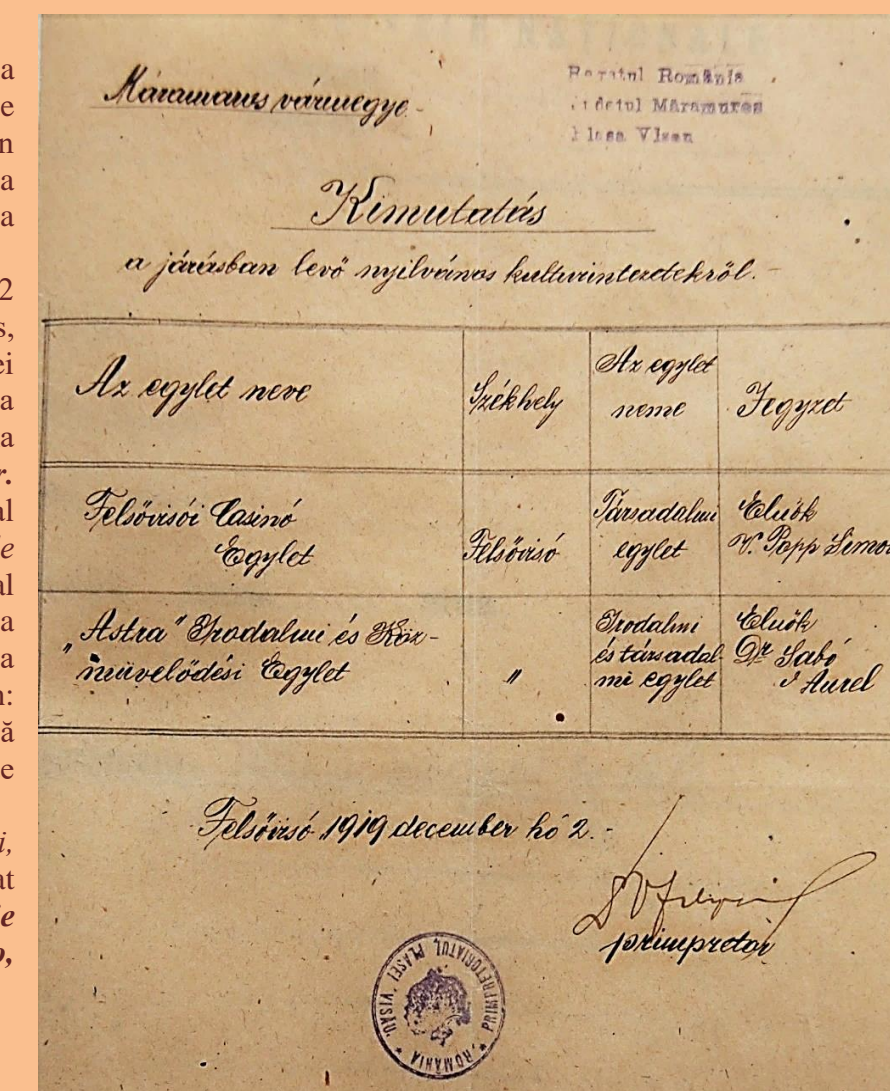 a
e
n
a
a
2
s,
ei
a
a
r.
al
e
al
a
a
n:
ă
e
i,
at
ie
o,
Máramaros vármegye -
România
Máramureș
Kimutatás
a járásban levő nyilvános kulturintézetekről. -
Az egylet neve
Székhely
Az egylet
neme
Jegyzet
Felsővisói Casinó
Egylet
Felsővisó
Társadalmi
egylet
Elnök
V. Papp Simon
"Astra" Irodalmi és Köz-
művelődési Egylet
"
Irodalmi
és társadal-
mi egylet
Elnök
Dr Szabó
Aurel
Felsővisó 1919 december hó 2. -
primpretor
PRIMPRETORIATUL PLASEI VISĂU * ROMÂNIA *